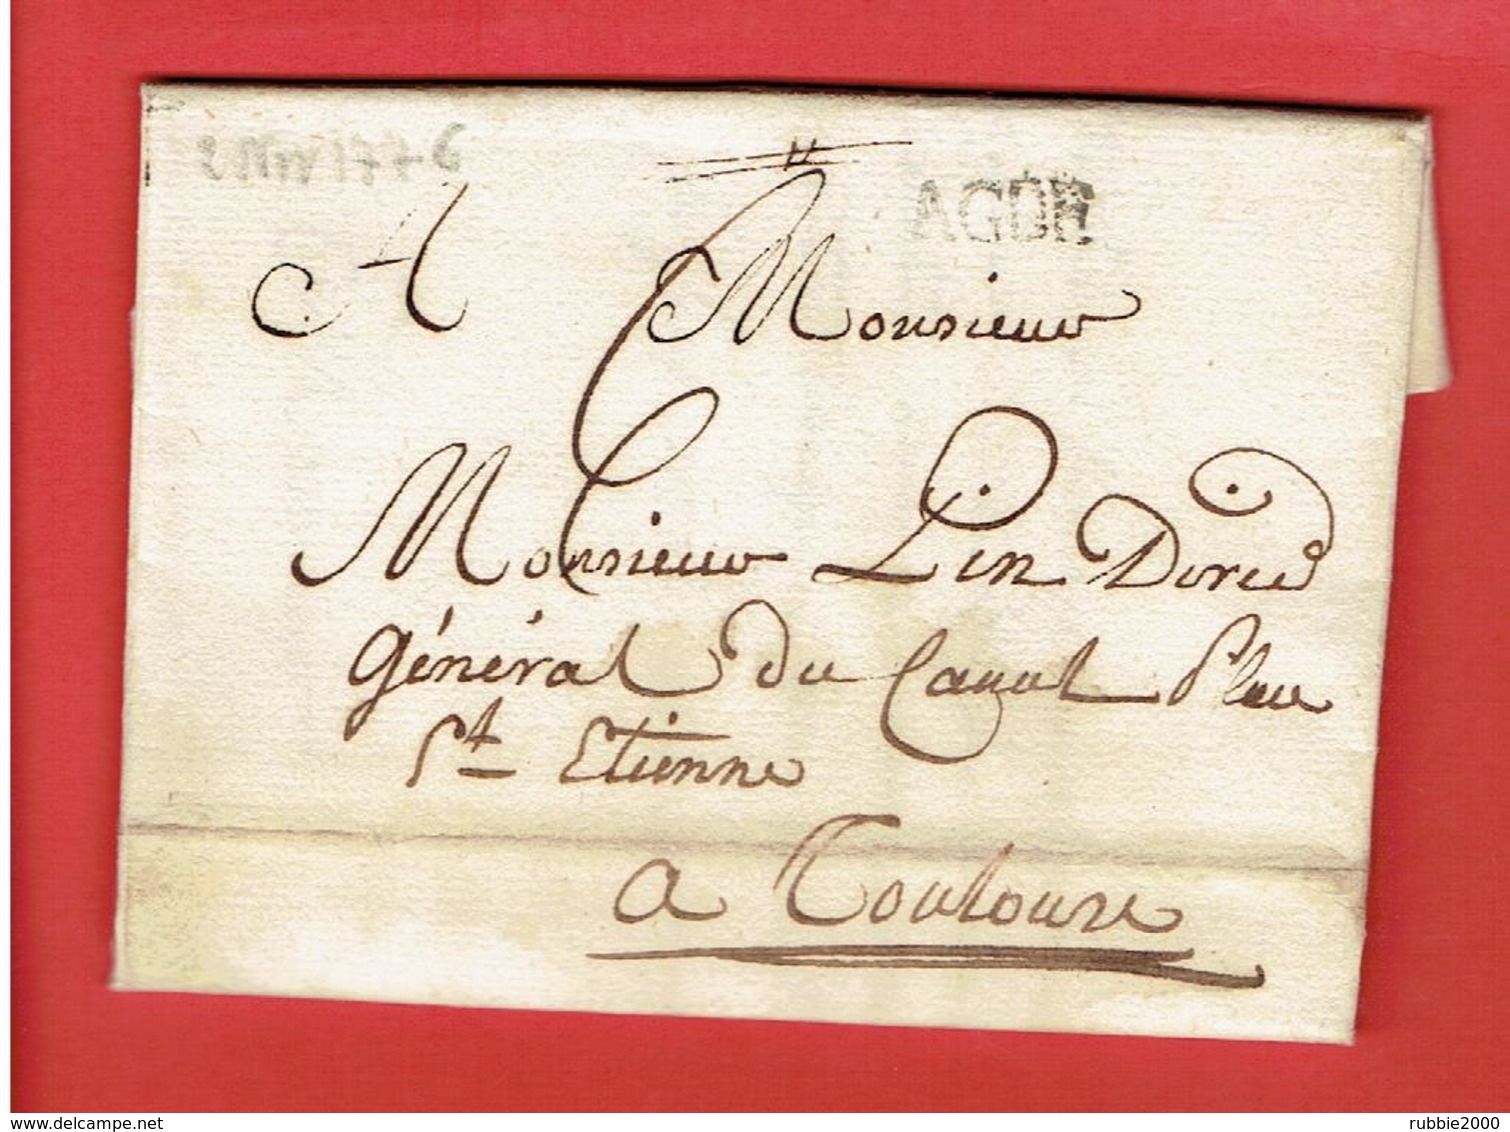 2 Nov 1776
AGDE
A Monsieur
6
Monsieur Lin Dored
Général du Canal Place
St Etienne
a Toulouse
delcampe.net
rubbie2000